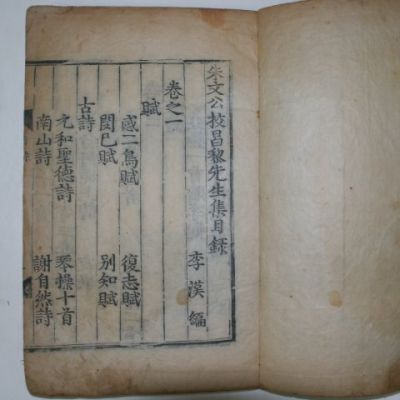 朱文公挍昌黎先生集目録
李漢編
卷之一
賦
感二鳥賦 復志賦
閔巳賦 別知賦
古詩
元和聖德詩 琴操十首
南山詩 謝自然詩